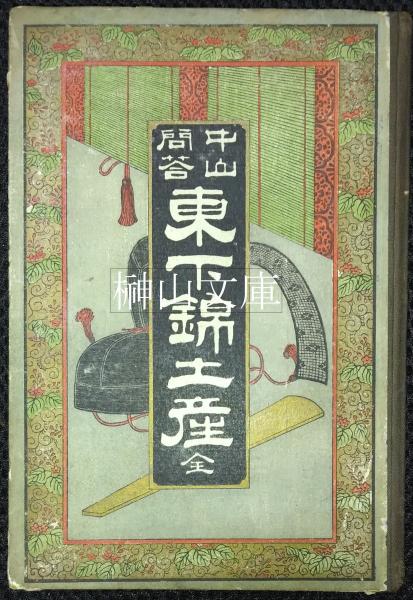 中山
問答
東下錦土産
全
榊山文庫